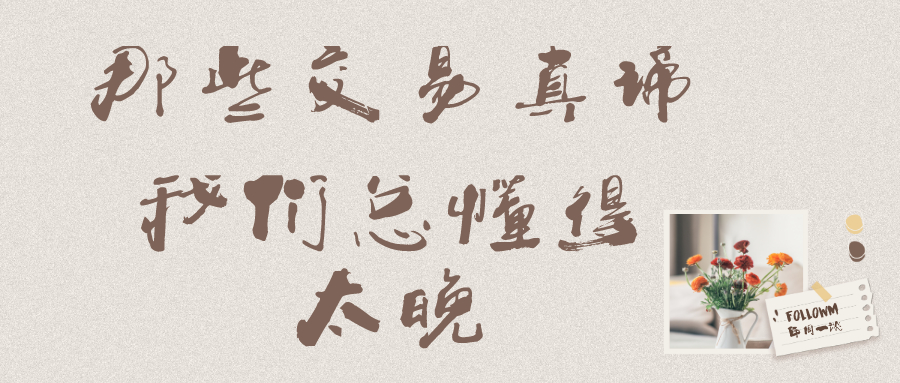 那些交易真谛
我们总懂得
太晚
FOLLOWM